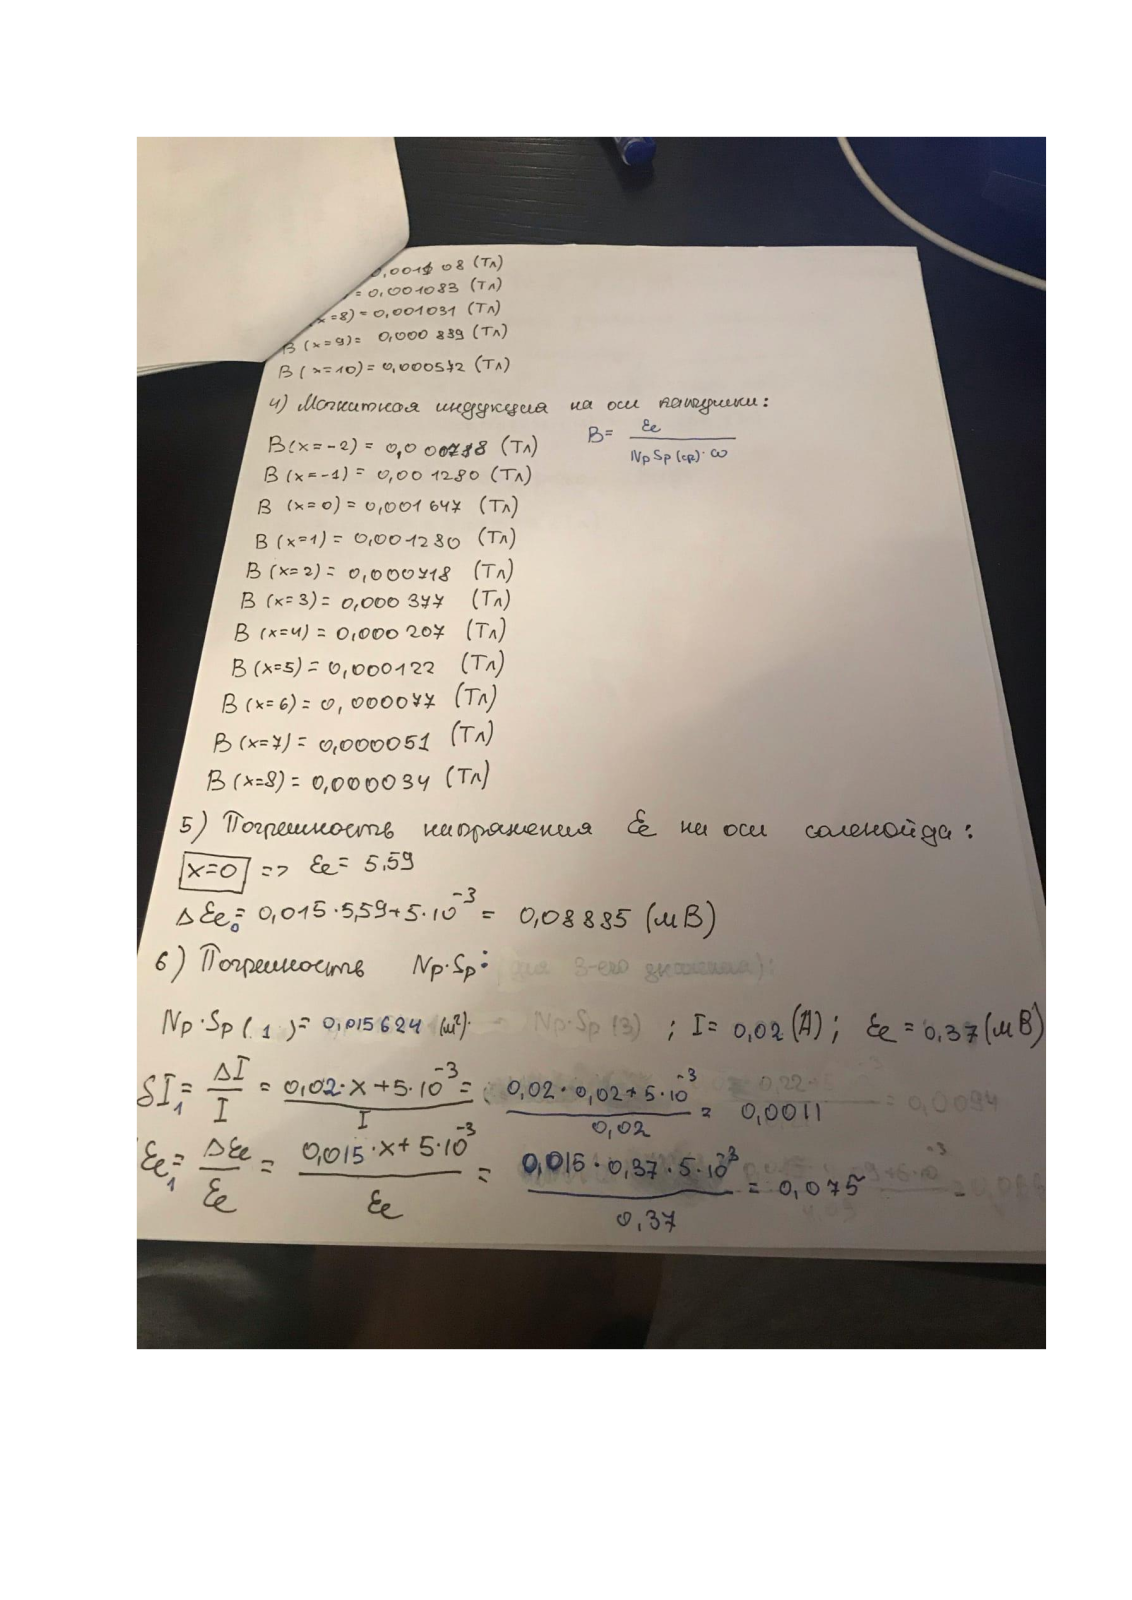 0,001 08 (Тл)
= 0,001083 (Тл)
(x=8) = 0,001031 (Тл)
B (x=9)= 0,000 839 (Тл)
B (x=10) = 0,000572 (Тл)
4) Магнитная индукция на оси катушки:
B = Ɛe / NpSp(ср)·ω
B(x=-2) = 0,000718 (Тл)
B(x=-1) = 0,001280 (Тл)
B (x=0) = 0,001647 (Тл)
B (x=1) = 0,001280 (Тл)
B (x=2) = 0,000718 (Тл)
B (x=3) = 0,000 377 (Тл)
B (x=4) = 0,000 207 (Тл)
B (x=5) = 0,000122 (Тл)
B (x=6) = 0,000077 (Тл)
B (x=7) = 0,000051 (Тл)
B (x=8) = 0,000034 (Тл)
5) Погрешность напряжения Ɛe на оси соленойда:
x=0 => Ɛe = 5,59
ΔƐe₀ = 0,015·5,59+5·10⁻³ = 0,08885 (мВ)
6) Погрешность Np·Sp:
Np·Sp(1) = 0,015624 (м²). ; I = 0,02 (А); Ɛe = 0,37 (мВ)
δI₁ = ΔI / I = 0,02·x+5·10⁻³ / I = 0,02·0,02+5·10⁻³ / 0,02 = 0,0011
Ɛe₁ = ΔƐe / Ɛe = 0,015·x+5·10⁻³ / Ɛe = 0,015·0,37·5·10⁻³ / 0,37 = 0,075